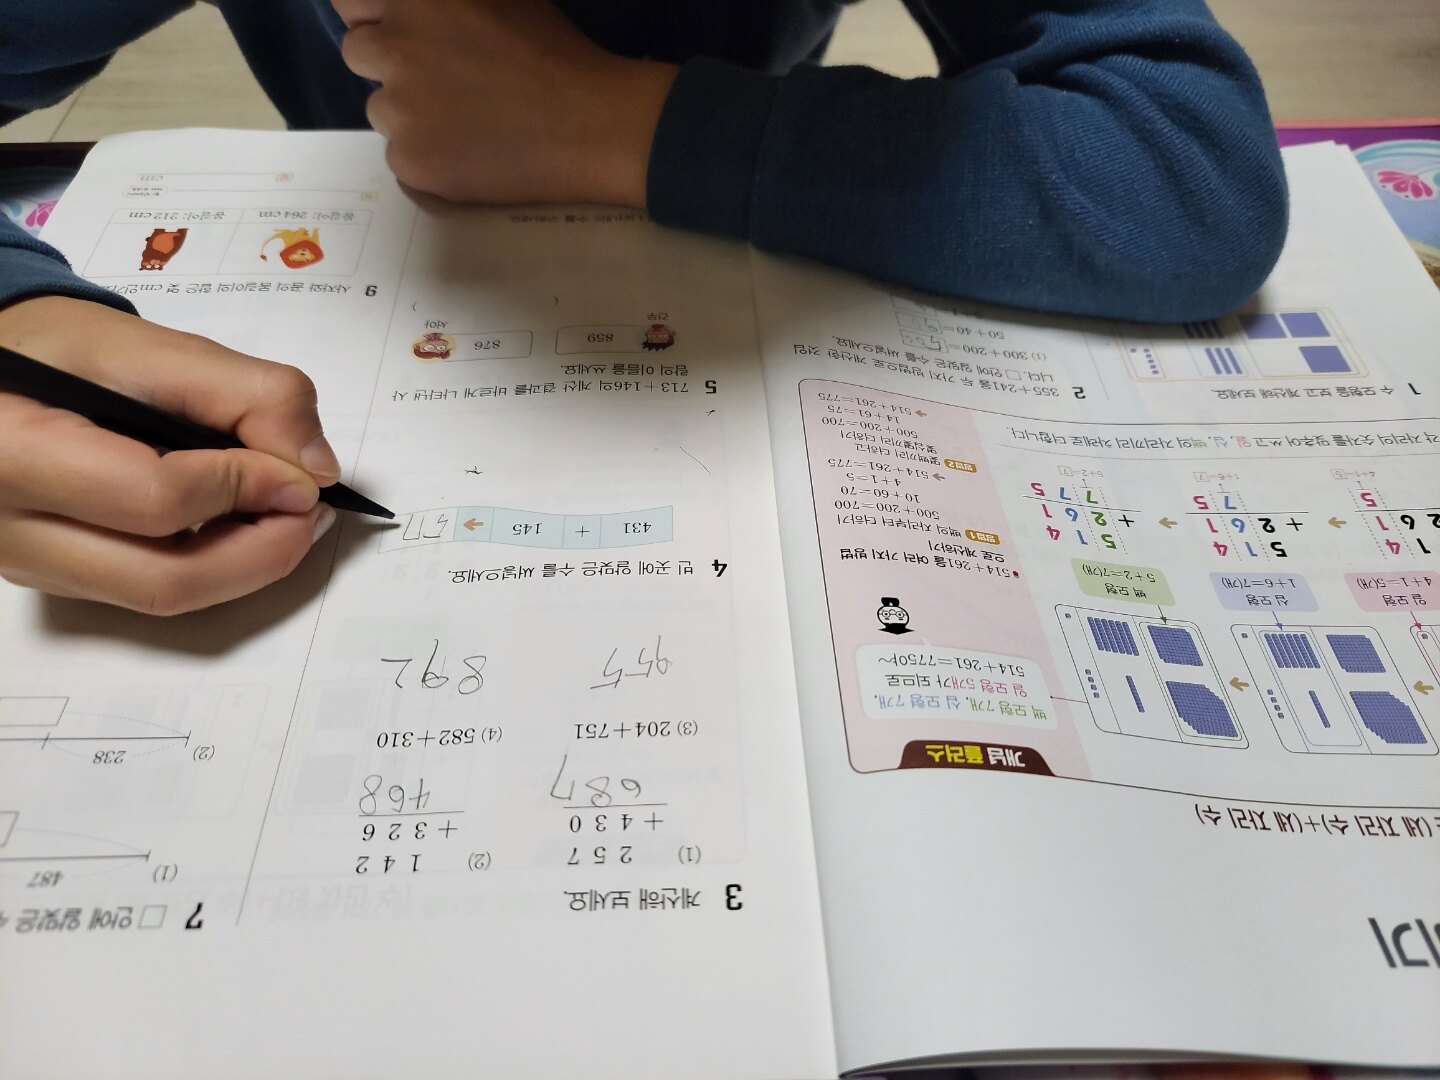 기
(세 자리 수)+(세 자리 수)
개념 플러스
백 모형 7개, 십 모형 7개,
일 모형 5개가 되므로
514+261=775야~
일 모형
4+1=5(개)
십 모형
1+6=7(개)
백 모형
5+2=7(개)
1 4
2 6 1
5
4+1=5
5 1 4
+ 2 6 1
7 5
1+6=7
5 1 4
+ 2 6 1
7 7 5
5+2=7
각 자리의 숫자를 맞추어 쓰고 일, 십, 백의 자리끼리 차례로 더합니다.
• 514+261을 여러 가지 방법
으로 계산하기
방법1 백의 자리부터 더하기
500+200=700
10+60=70
4+1=5
➔ 514+261=775
방법2 몇백끼리 더하고
몇십몇끼리 더하기
500+200=700
14+61=75
➔ 514+261=775
1 수 모형을 보고 계산해 보세요.
2 355+241을 두 가지 방법으로 계산한 것입
니다. □ 안에 알맞은 수를 써넣으세요.
(1) 300+200=500
50+40=90
3 계산해 보세요.
(1) 2 5 7
+ 4 3 0
6 8 7
(2) 1 4 2
+ 3 2 6
4 6 8
(3) 204+751
955
(4) 582+310
892
4 빈 곳에 알맞은 수를 써넣으세요.
431 + 145 ➔ 57
5 713+146의 계산 결과를 바르게 나타낸 사
람의 이름을 쓰세요.
859
건우
876
서아
( )
7 □ 안에 알맞은 수
(1)
487
(2)
238
사자와 곰의 몸길이의 합은 몇 cm인가요
몸길이: 264 cm
몸길이: 212 cm
답
cm